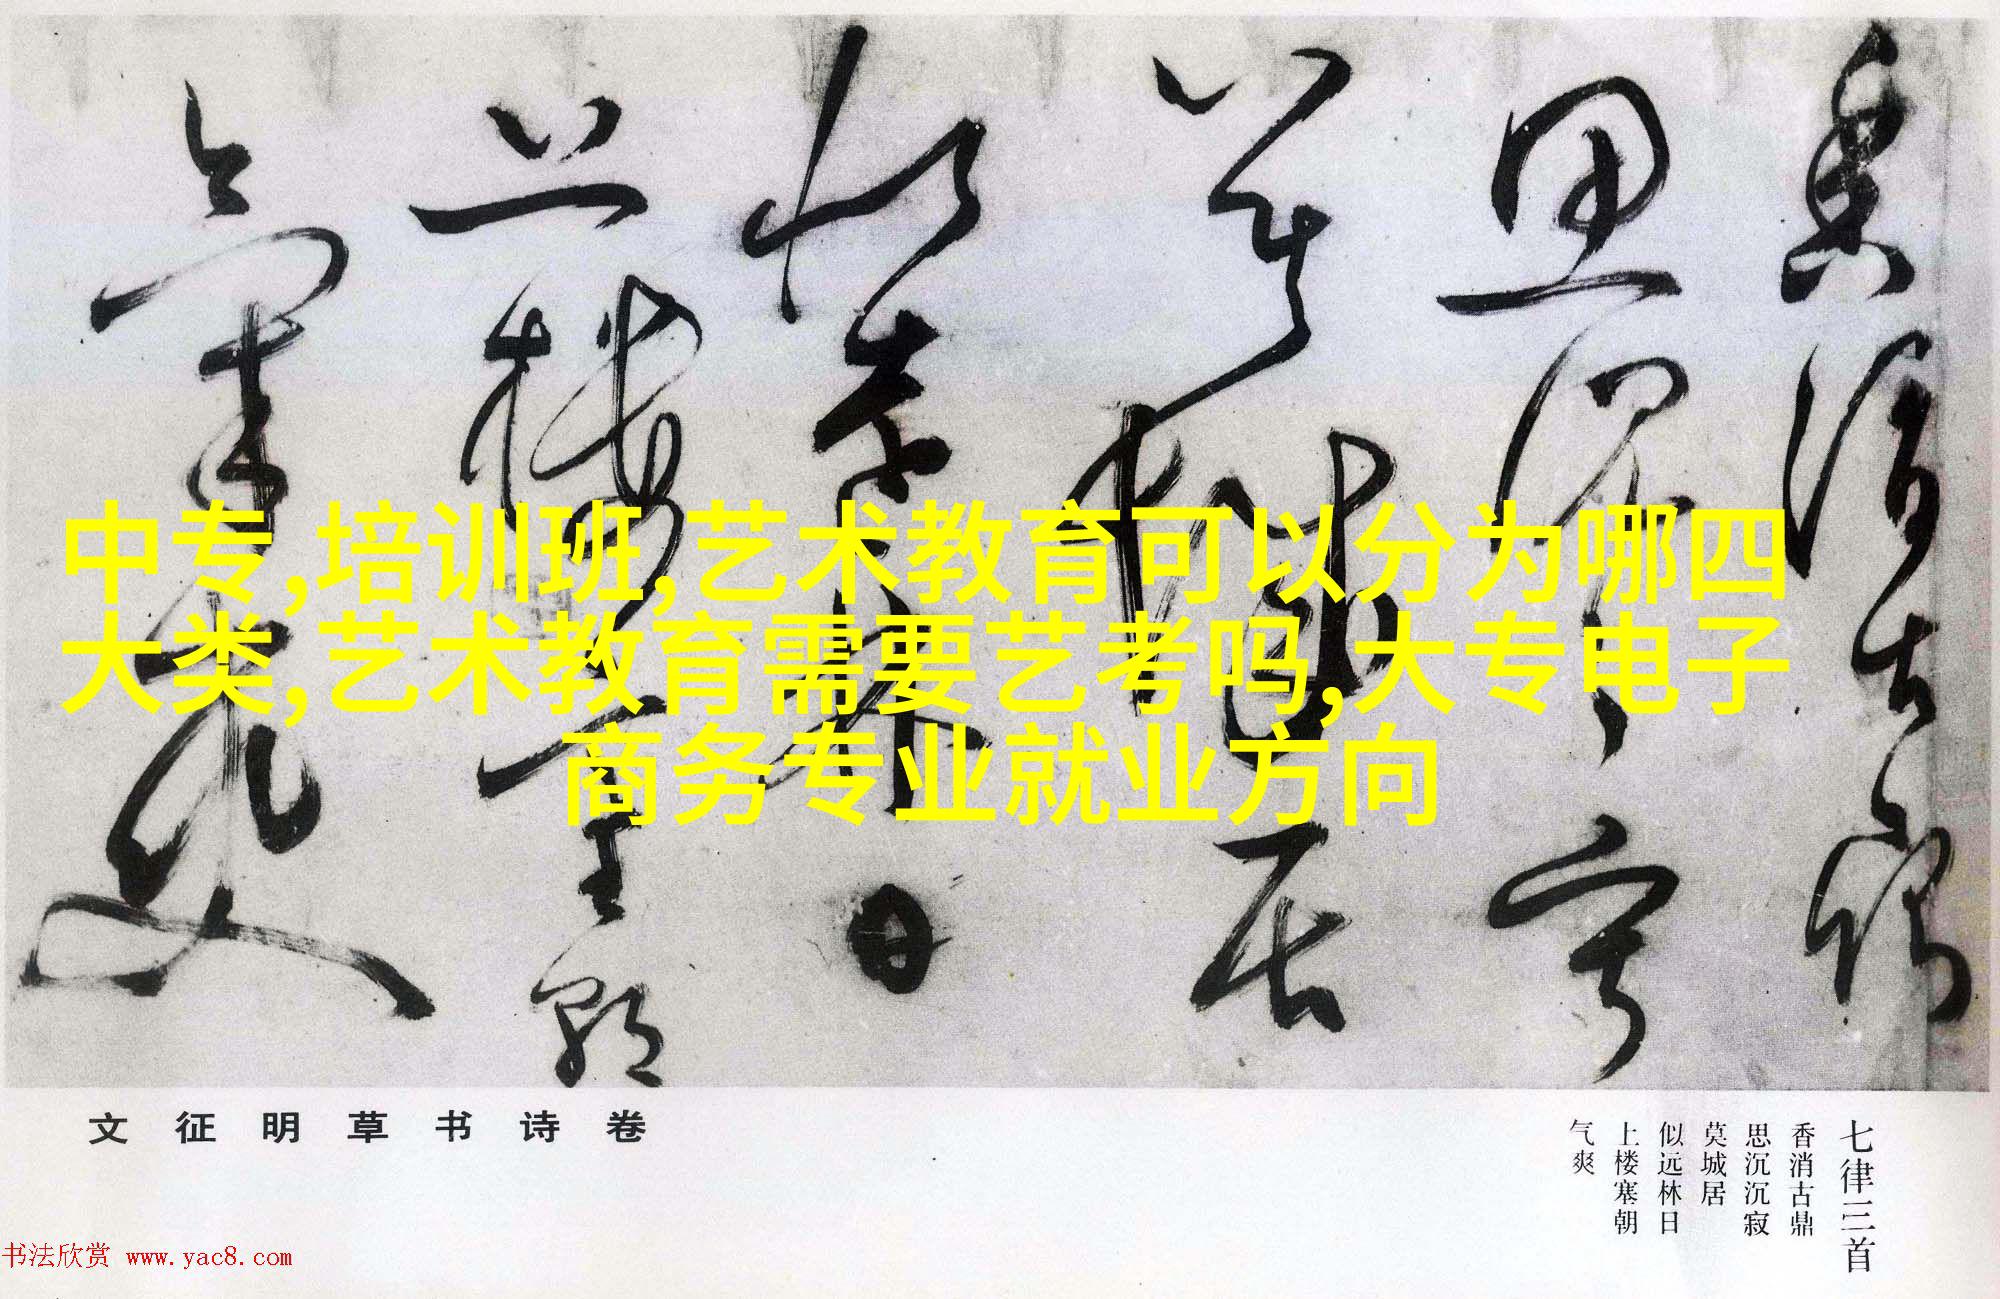 中专,培训班,艺术教育可以分为哪四
大类,艺术教育需要艺考吗,大专电子
商务专业就业方向
香消古鼎
思沉沉寂
莫城居
似远林日
上楼塞朝
气爽
文征明草书诗卷
七律三首
香消古鼎
思沉沉寂
莫城居
似远林日
上楼塞朝
气爽
书法欣赏 www.yac8.com